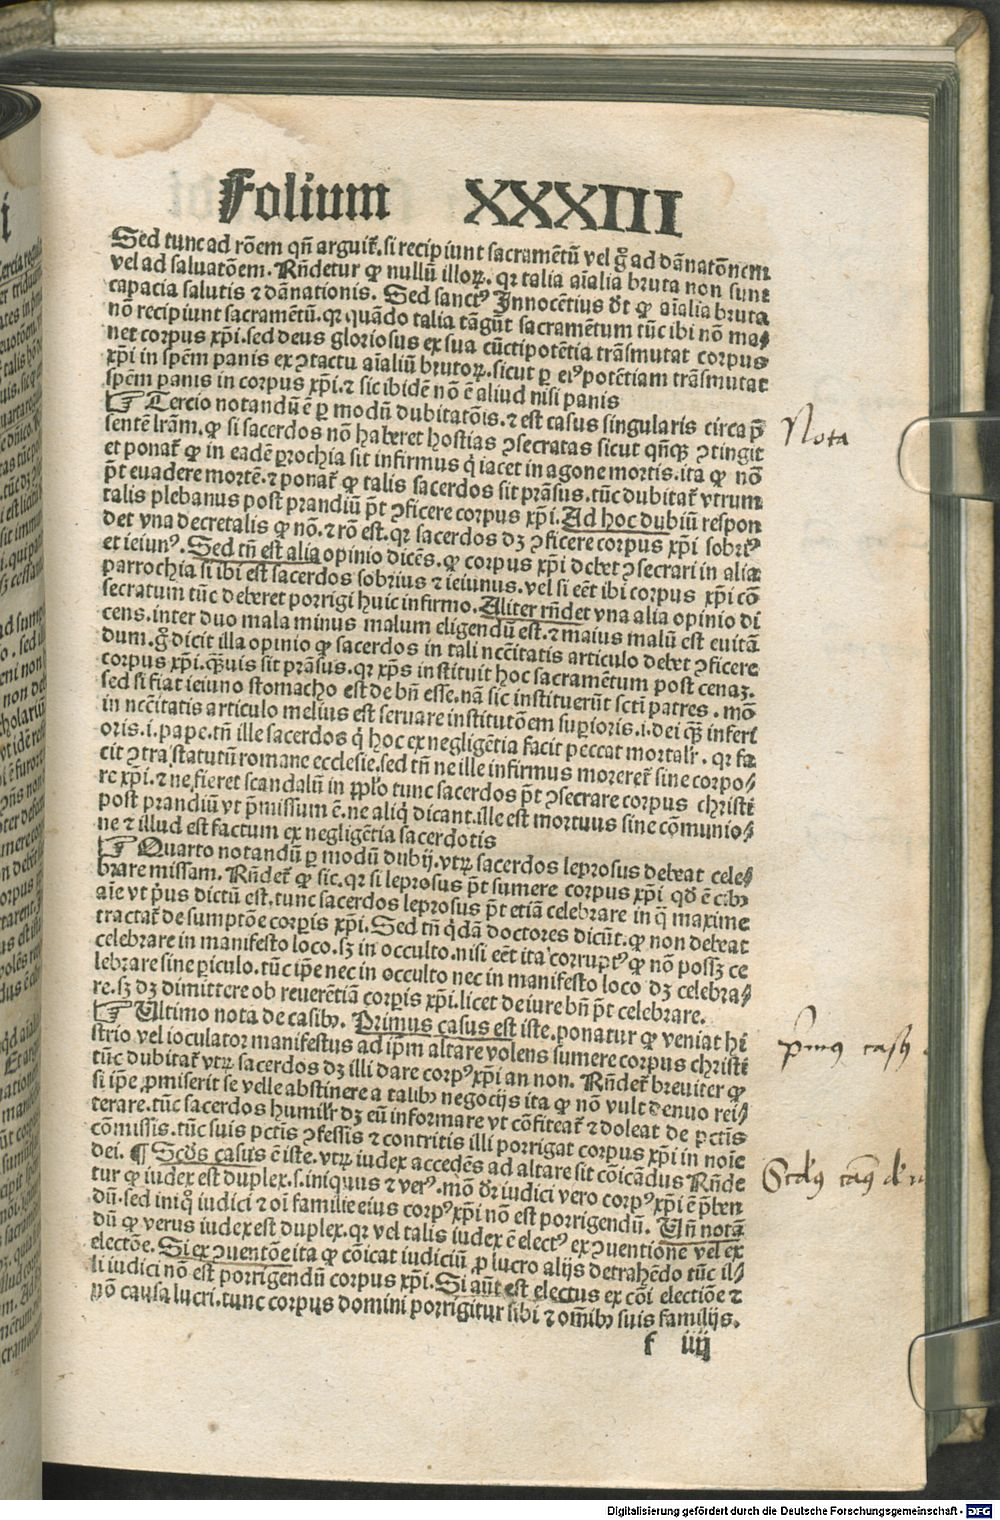 Folium XXXIII
Sed tunc ad rõem qñ arguit̃. si recipiunt sacramẽtũ vel gͦ ad dãnatõnem
vel ad saluatõem. Rñdetur ꝙ nullũ illoꝝ. qꝛ talia aĩalia bruta non sunt
capacia salutis ⁊ dãnationis. Sed sanctꝰ Innocẽtius dt̃ ꝙ aĩalia bruta
nõ recipiunt sacramẽtũ. qꝛ quãdo talia tãgũt sacramẽtum tũc ibi nõ ma⸗
net corpus xp̃i. sed deus gloriosus ex sua cũctipotẽtia trãsmutat corpus
xp̃i in spẽm panis ex ꝯtactu aĩaliũ brutoꝝ. sicut ꝑ eiꝰ potẽtiam trãsmutat
spẽm panis in corpus xp̃i. ⁊ sic ibidẽ nõ ẽ aliud nisi panis
☞ Tercio notandũ ẽ ꝑ modũ dubitatõis. ⁊ est casus singularis circa p̃
sentẽ lr̃am. ꝙ si sacerdos nõ haberet hostias ꝯsecratas sicut qñqꝫ ꝯtingit
et ponat̃ ꝙ in eadẽ ꝑrochia sit infirmus q̇ iacet in agone mortis. ita ꝙ nõ
p̃t euadere mortẽ. ⁊ ponat̃ ꝙ talis sacerdos sit prãsus. tũc dubitat̃ vtrum
talis plebanus post prandiũ p̃t ꝯficere corpus xp̃i. Ad hoc dubiũ respon
det vna decretalis ꝙ nõ. ⁊ rõ est. qꝛ sacerdos dꝫ ꝯficere corpus xp̃i sobriꝰ
et ieiunꝰ. Sed tñ est alia opinio dicẽs. ꝙ corpus xp̃i debet ꝯsecrari in alia
parrochia si ibi est sacerdos sobrius ⁊ ieiunus. vel si eẽt ibi corpus xp̃i cõ
secratum tũc deberet porrigi huic infirmo. Aliter rñdet vna alia opinio di
cens. inter duo mala minus malum eligendũ est. ⁊ maius malũ est euitã
dum. gͦ dicit illa opinio ꝙ sacerdos in tali nccĩtatis articulo debet ꝯficere
corpus xp̃i. qꝫuis sit prãsus. qꝛ xp̃s instituit hoc sacramẽtum post cenaꝫ.
sed si fiat ieiuno stomacho est de bñ esse. nã sic instituerũt scti patres. mõ
in nccĩtatis articulo melius est seruare institutõem suꝑioris. i. dei qꝫ inferi
oris. i. pape. tñ ille sacerdos q̇ hoc ex negligẽtia facit peccat mortalr̃. qꝛ fa
cit ꝯtra statutũ romane ecclesie. sed tñ ne ille infirmus moreret̃ sine corpo⸗
re xp̃i. ⁊ ne fieret scandalũ in ppl̃o tunc sacerdos p̃t ꝯsecrare corpus christi
post prandiũ vt p̃missum ẽ. ne aliq̇ dicant. ille est mortuus sine cõmunio⸗
ne ⁊ illud est factum ex negligẽtia sacerdotis
☞ Quarto notandũ ꝑ modũ dubij. vtꝝ sacerdos leprosus debeat cele⸗
brare missam. Rñdet̃ ꝙ sic. qꝛ si leprosus p̃t sumere corpus xp̃i qd̃ ẽ cibꝰ
aĩe vt ṗus dictũ est. tunc sacerdos leprosus p̃t etiã celebrare in q̃ maxime
tractat̃ de sumptõe corꝑis xp̃i. Sed tñ q̇dã doctores dicũt. ꝙ non debeat
celebrare in manifesto loco. sꝫ in occulto. nisi eẽt ita corruptꝰ ꝙ nõ possꝫ ce
lebrare sine ꝑiculo. tũc ip̃e nec in occulto nec in manifesto loco dꝫ celebra⸗
re. sꝫ dꝫ dimittere ob reuerẽtiã corꝑis xp̃i. licet de iure bñ p̃t celebrare.
☞ Ultimo nota de casibꝰ. Primus casus est iste. ponatur ꝙ veniat hi
strio vel ioculator manifestus ad ip̃m altare volens sumere corpus christi
tũc dubitat̃ vtꝝ sacerdos dꝫ illi dare corpꝰ xp̃i an non. Rñdet̃ breuiter ꝙ
si ip̃e ꝓmiserit se velle abstinere a talibꝰ negocijs ita ꝙ nõ vult denuo rei⸗
terare. tũc sacerdos humilr̃ dꝫ eũ informare vt cõfiteat̃ ⁊ doleat de pctĩs
cõmissis. tũc suis pctĩs ꝯfessis ⁊ contritis illi porrigat corpus xp̃i in noĩe
dei. ¶ Scd̃s casus ẽ iste. vtꝝ iudex accedẽs ad altare sit cõicãdus Rñde
tur ꝙ iudex est duplex. s. iniquus ⁊ verꝰ. mõ dr̃ iudici vero corpꝰ xp̃i ẽ p̃ben
dũ. sed iniqͦ iudici ⁊ oĩ familie eius corpꝰ xp̃i nõ est porrigendũ. Uñ notã
dũ ꝙ verus iudex est duplex. qꝛ vel talis iudex ẽ electꝰ ex ꝯuentione vel ex
electõe. Si ex ꝯuentõe ita ꝙ cõicat iudiciũ ꝓ lucro alijs detrahẽdo tũc il⸗
li iudici nõ est porrigendũ corpus xp̃i. Si aũt est electus ex cõi electiõe ⁊
nõ causa lucri. tunc corpus domini porrigitur sibi ⁊ om̃ibꝰ suis familijs.
f iiij
Nota
p̃mꝰ casꝰ
Scdꝰ casꝰ